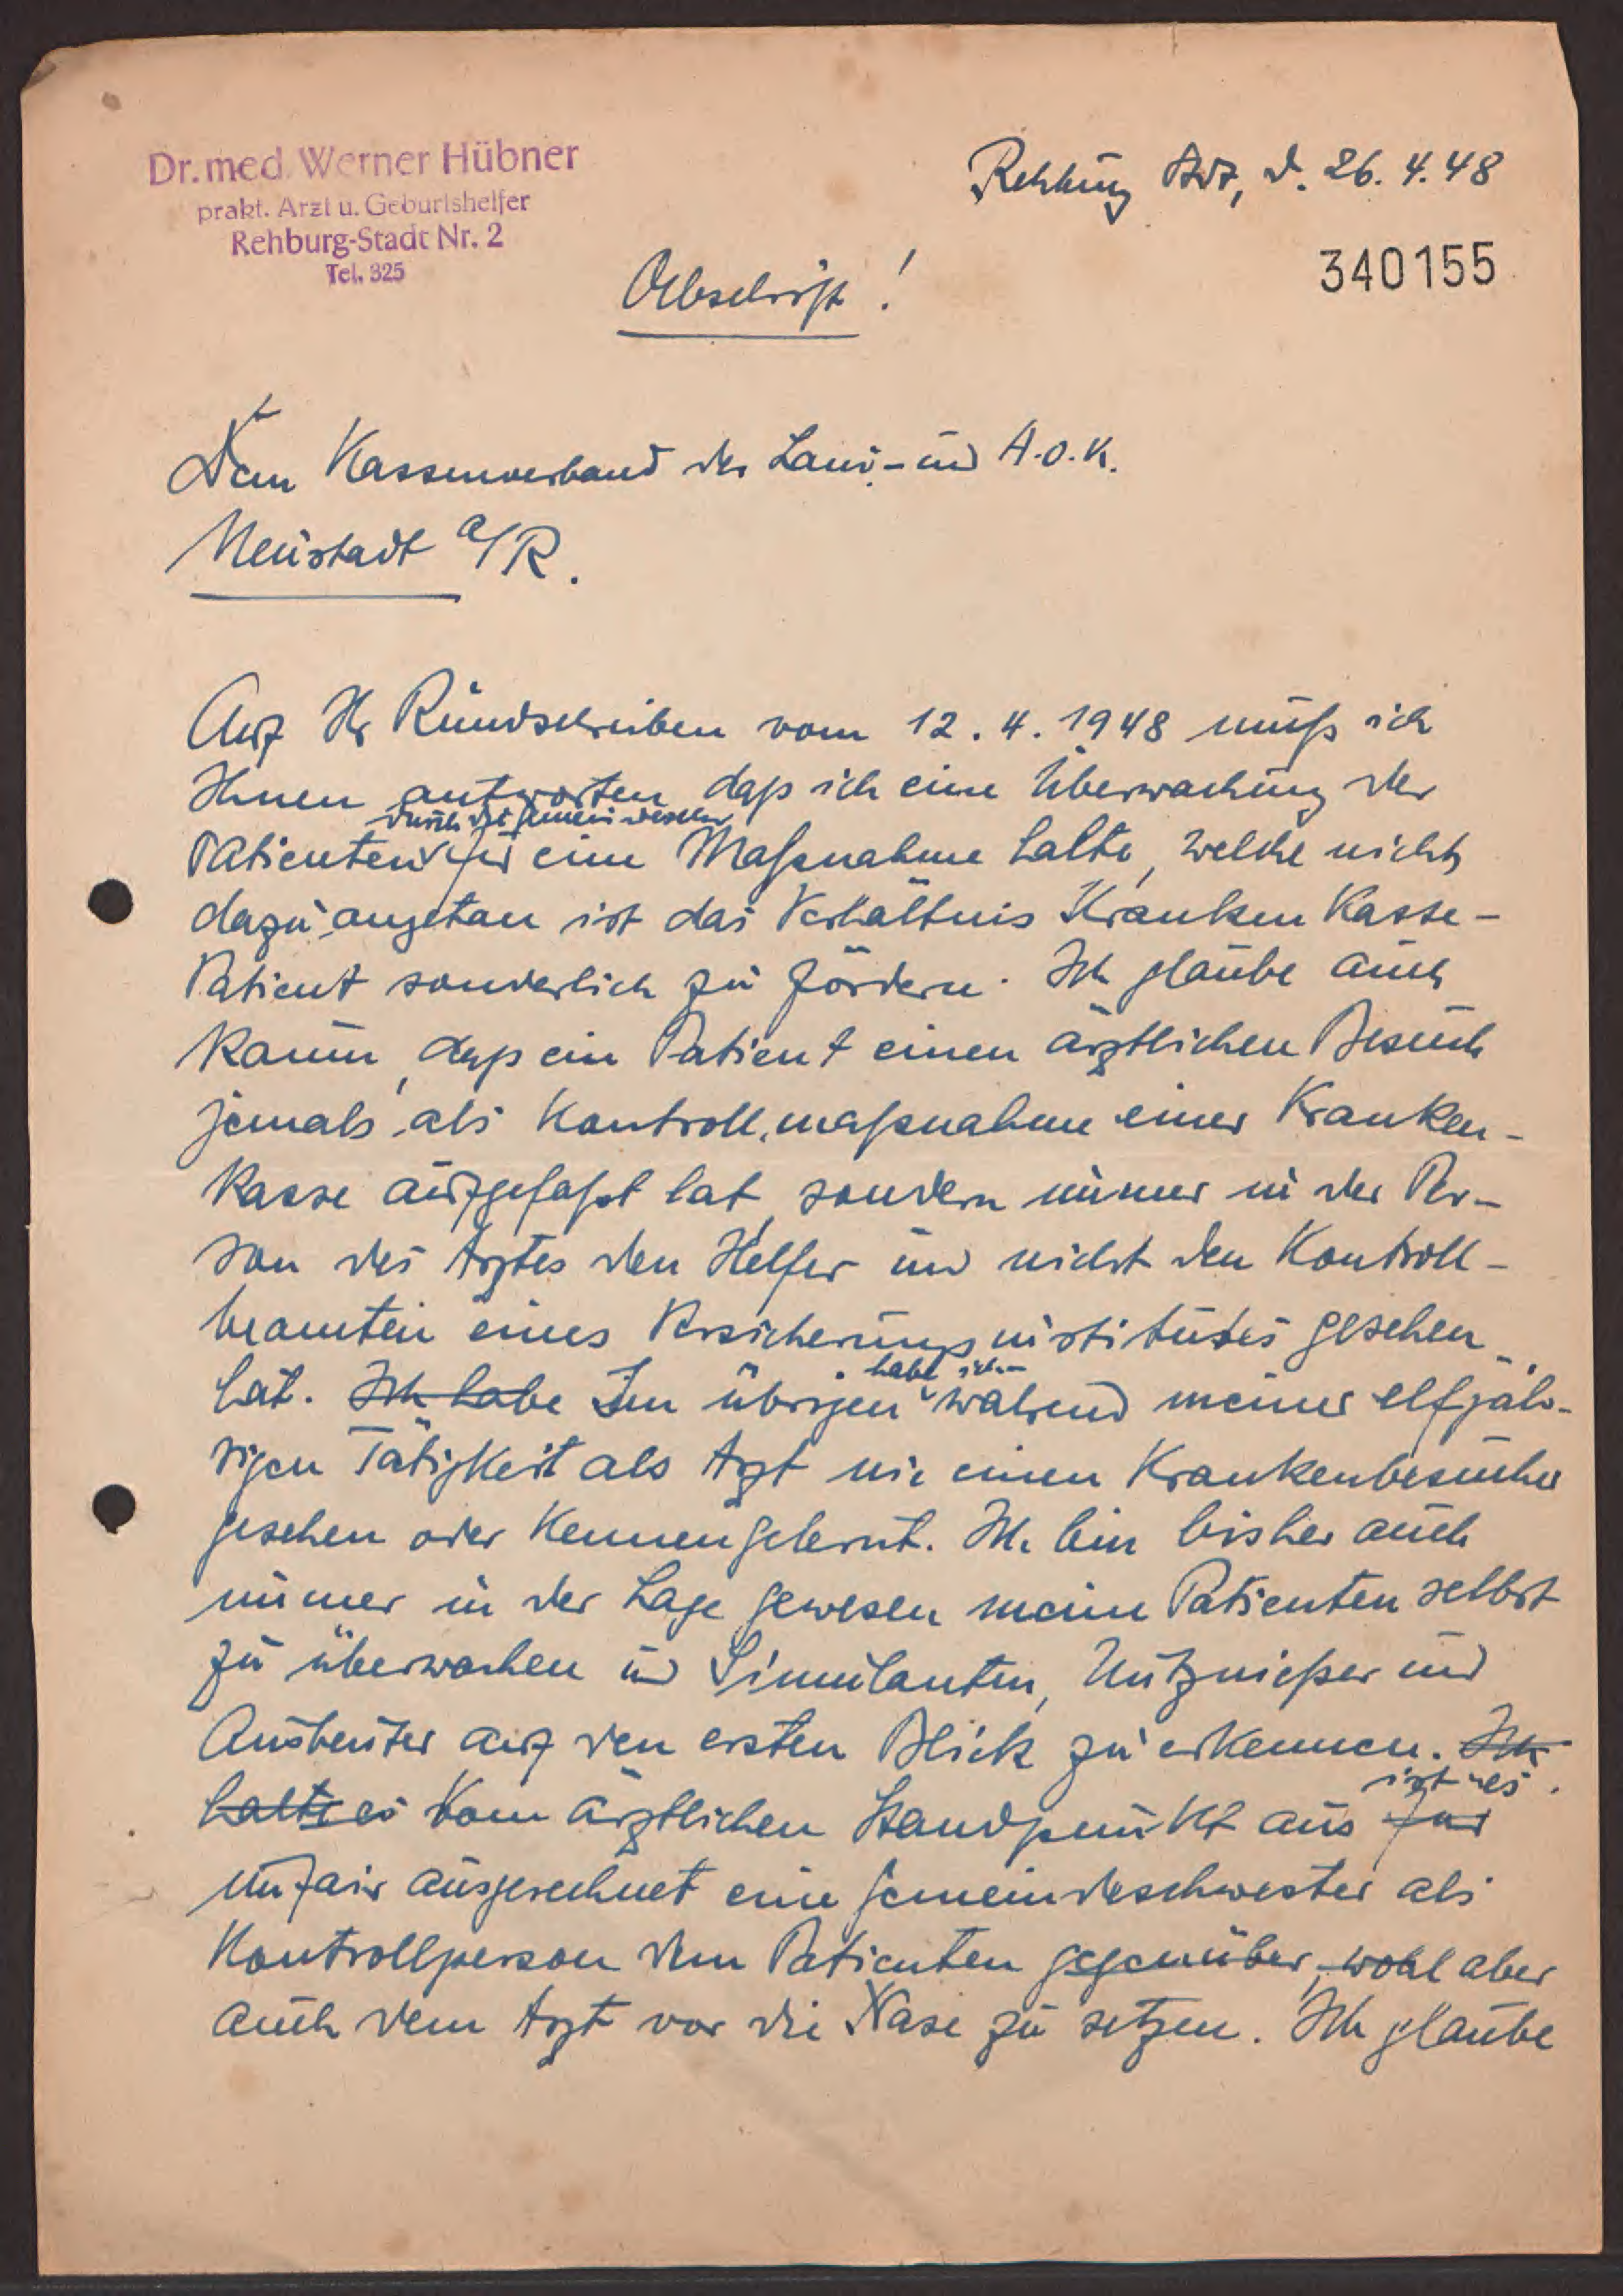 Dr. med. Werner Hübner
prakt. Arzt u. Geburtshelfer
Rehburg-Stadt Nr. 2
Tel. 325
Rehburg Stdt, d. 26. 4. 48
340155
Abschrift!
Dem Kassenverband der Land- und A.O.K.
Neustadt a/R.
Auf Ihr Rundschreiben vom 12. 4. 1948 muß ich
Ihnen antworten daß ich eine Überwachung der
durch die Gemeindeschw
Patienten für eine Maßnahme halte, welche nicht
dazu angetan ist das Verhältnis Kranken Kasse-
Patient sonderlich zu fördern. Ich glaube auch
kaum, daß ein Patient einen ärztlichen Besuch
jemals als Kontrollmaßnahme einer Kranken-
kasse aufgefaßt hat, sondern immer in der Per-
son des Arztes den Helfer und nicht den Kontroll-
beamten eines Versicherungsinstitutes gesehen
habe ich
hat. Ich habe Im übrigen während meiner elfjäh-
rigen Tätigkeit als Arzt nie einen Krankenbesucher
gesehen oder kennengelernt. Ich bin bisher auch
immer in der Lage gewesen meine Patienten selbst
zu überwachen und Simulanten, Nutznießer und
Ausbeuter auf den ersten Blick zu erkennen. Ich
ist es
halte es Vom ärztlichen Standpunkt aus für
unfair ausgerechnet eine Gemeindeschwester als
Kontrollperson dem Patienten gegenüber, wohl aber
auch dem Arzt vor die Nase zu setzen. Ich glaube